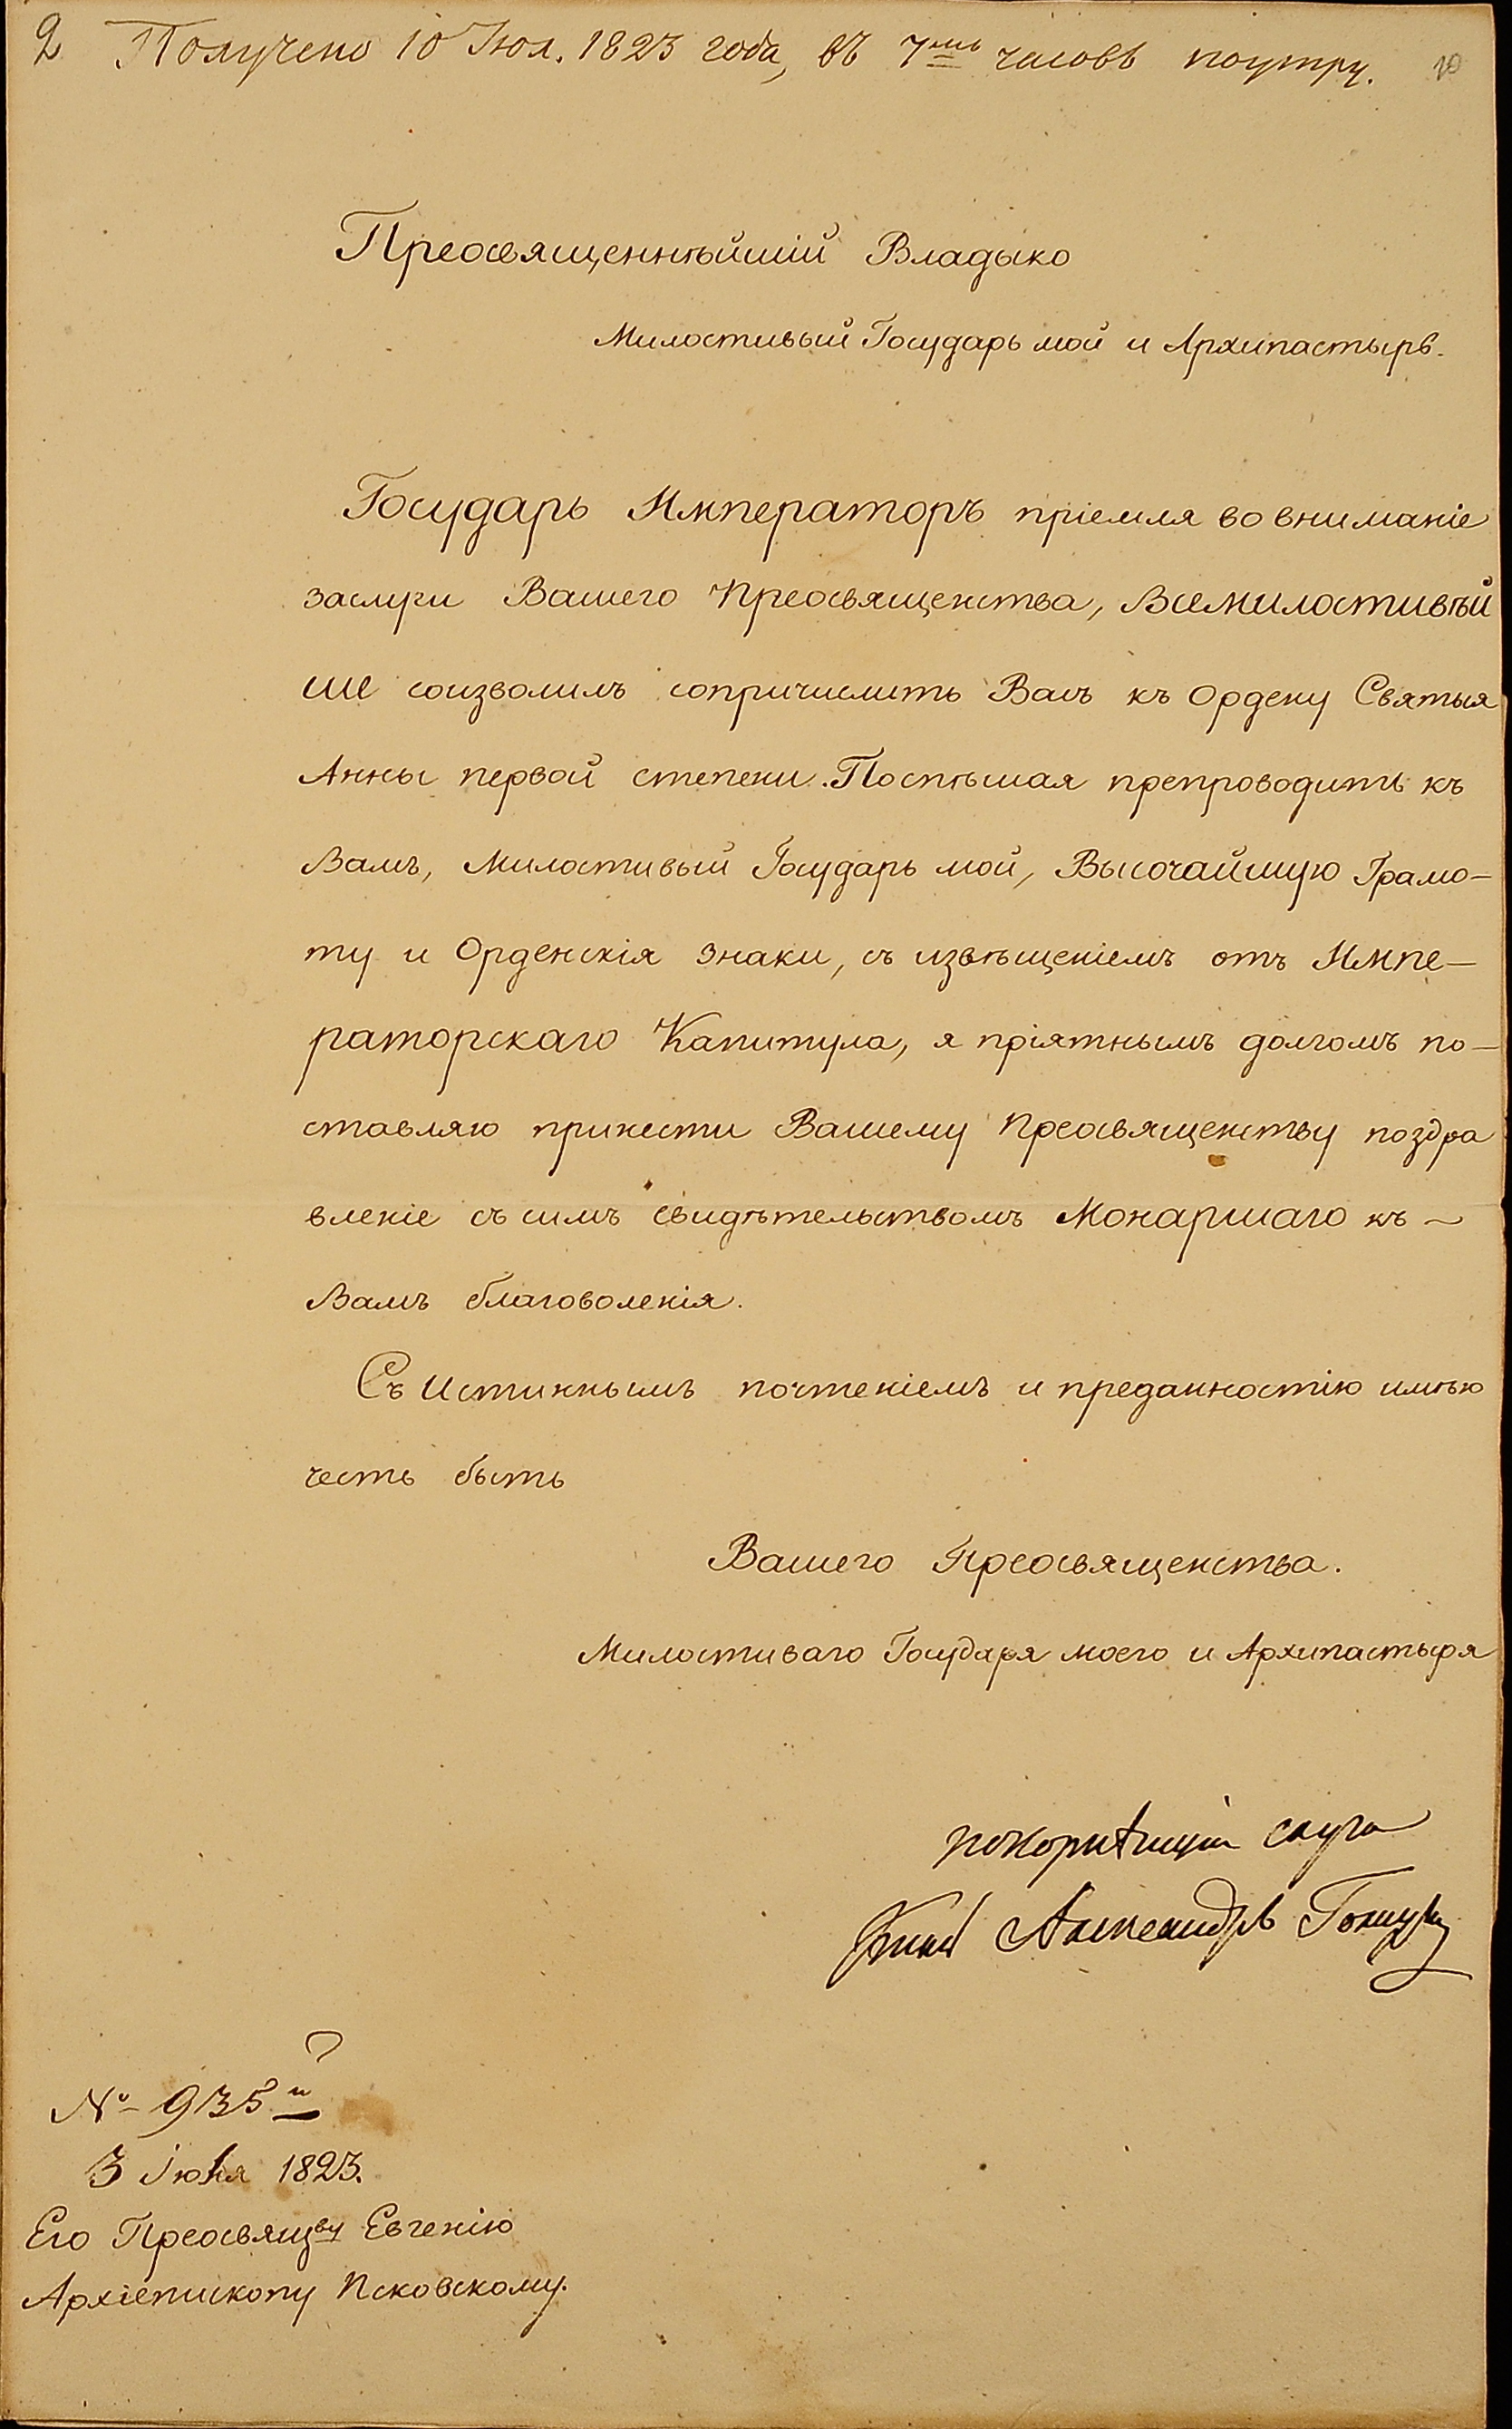 2 Получено 10 Іюл. 1823 года, въ 7мь часовъ поутру. 10
Преосвященнѣйшій Владыко
Милостивый Государь мой и Архипастырь.
Государь Императоръ пріемля во вниманіе
заслуги Вашего Преосвященства, Всемилостивѣй
ше соизволилъ сопричислить Васъ къ Ордену Святыя
Анны первой степени. Поспѣшая препроводить къ
Вамъ, Милостивый Государь мой, Высочайшую Грамо–
ту и Орденскія знаки, съ извѣщеніемъ отъ Импе–
раторскаго Капитула, я пріятнымъ долгомъ по–
ставляю принести Вашему Преосвященству поздра
вленіе съ симъ свидѣтельствомъ Монаршаго къ –
Вамъ благоволенія.
Съ Истиннымъ почтеніемъ и преданностію имѣю
честь быть
Вашего Преосвященства.
Милостиваго Государя моего и Архипастыря
покорнѣйшій слуга
Князь Александръ Голицынъ
№ 935й
3 Іюля 1823.
Его Преосвящву Евгенію
Архіепископу Псковскому.